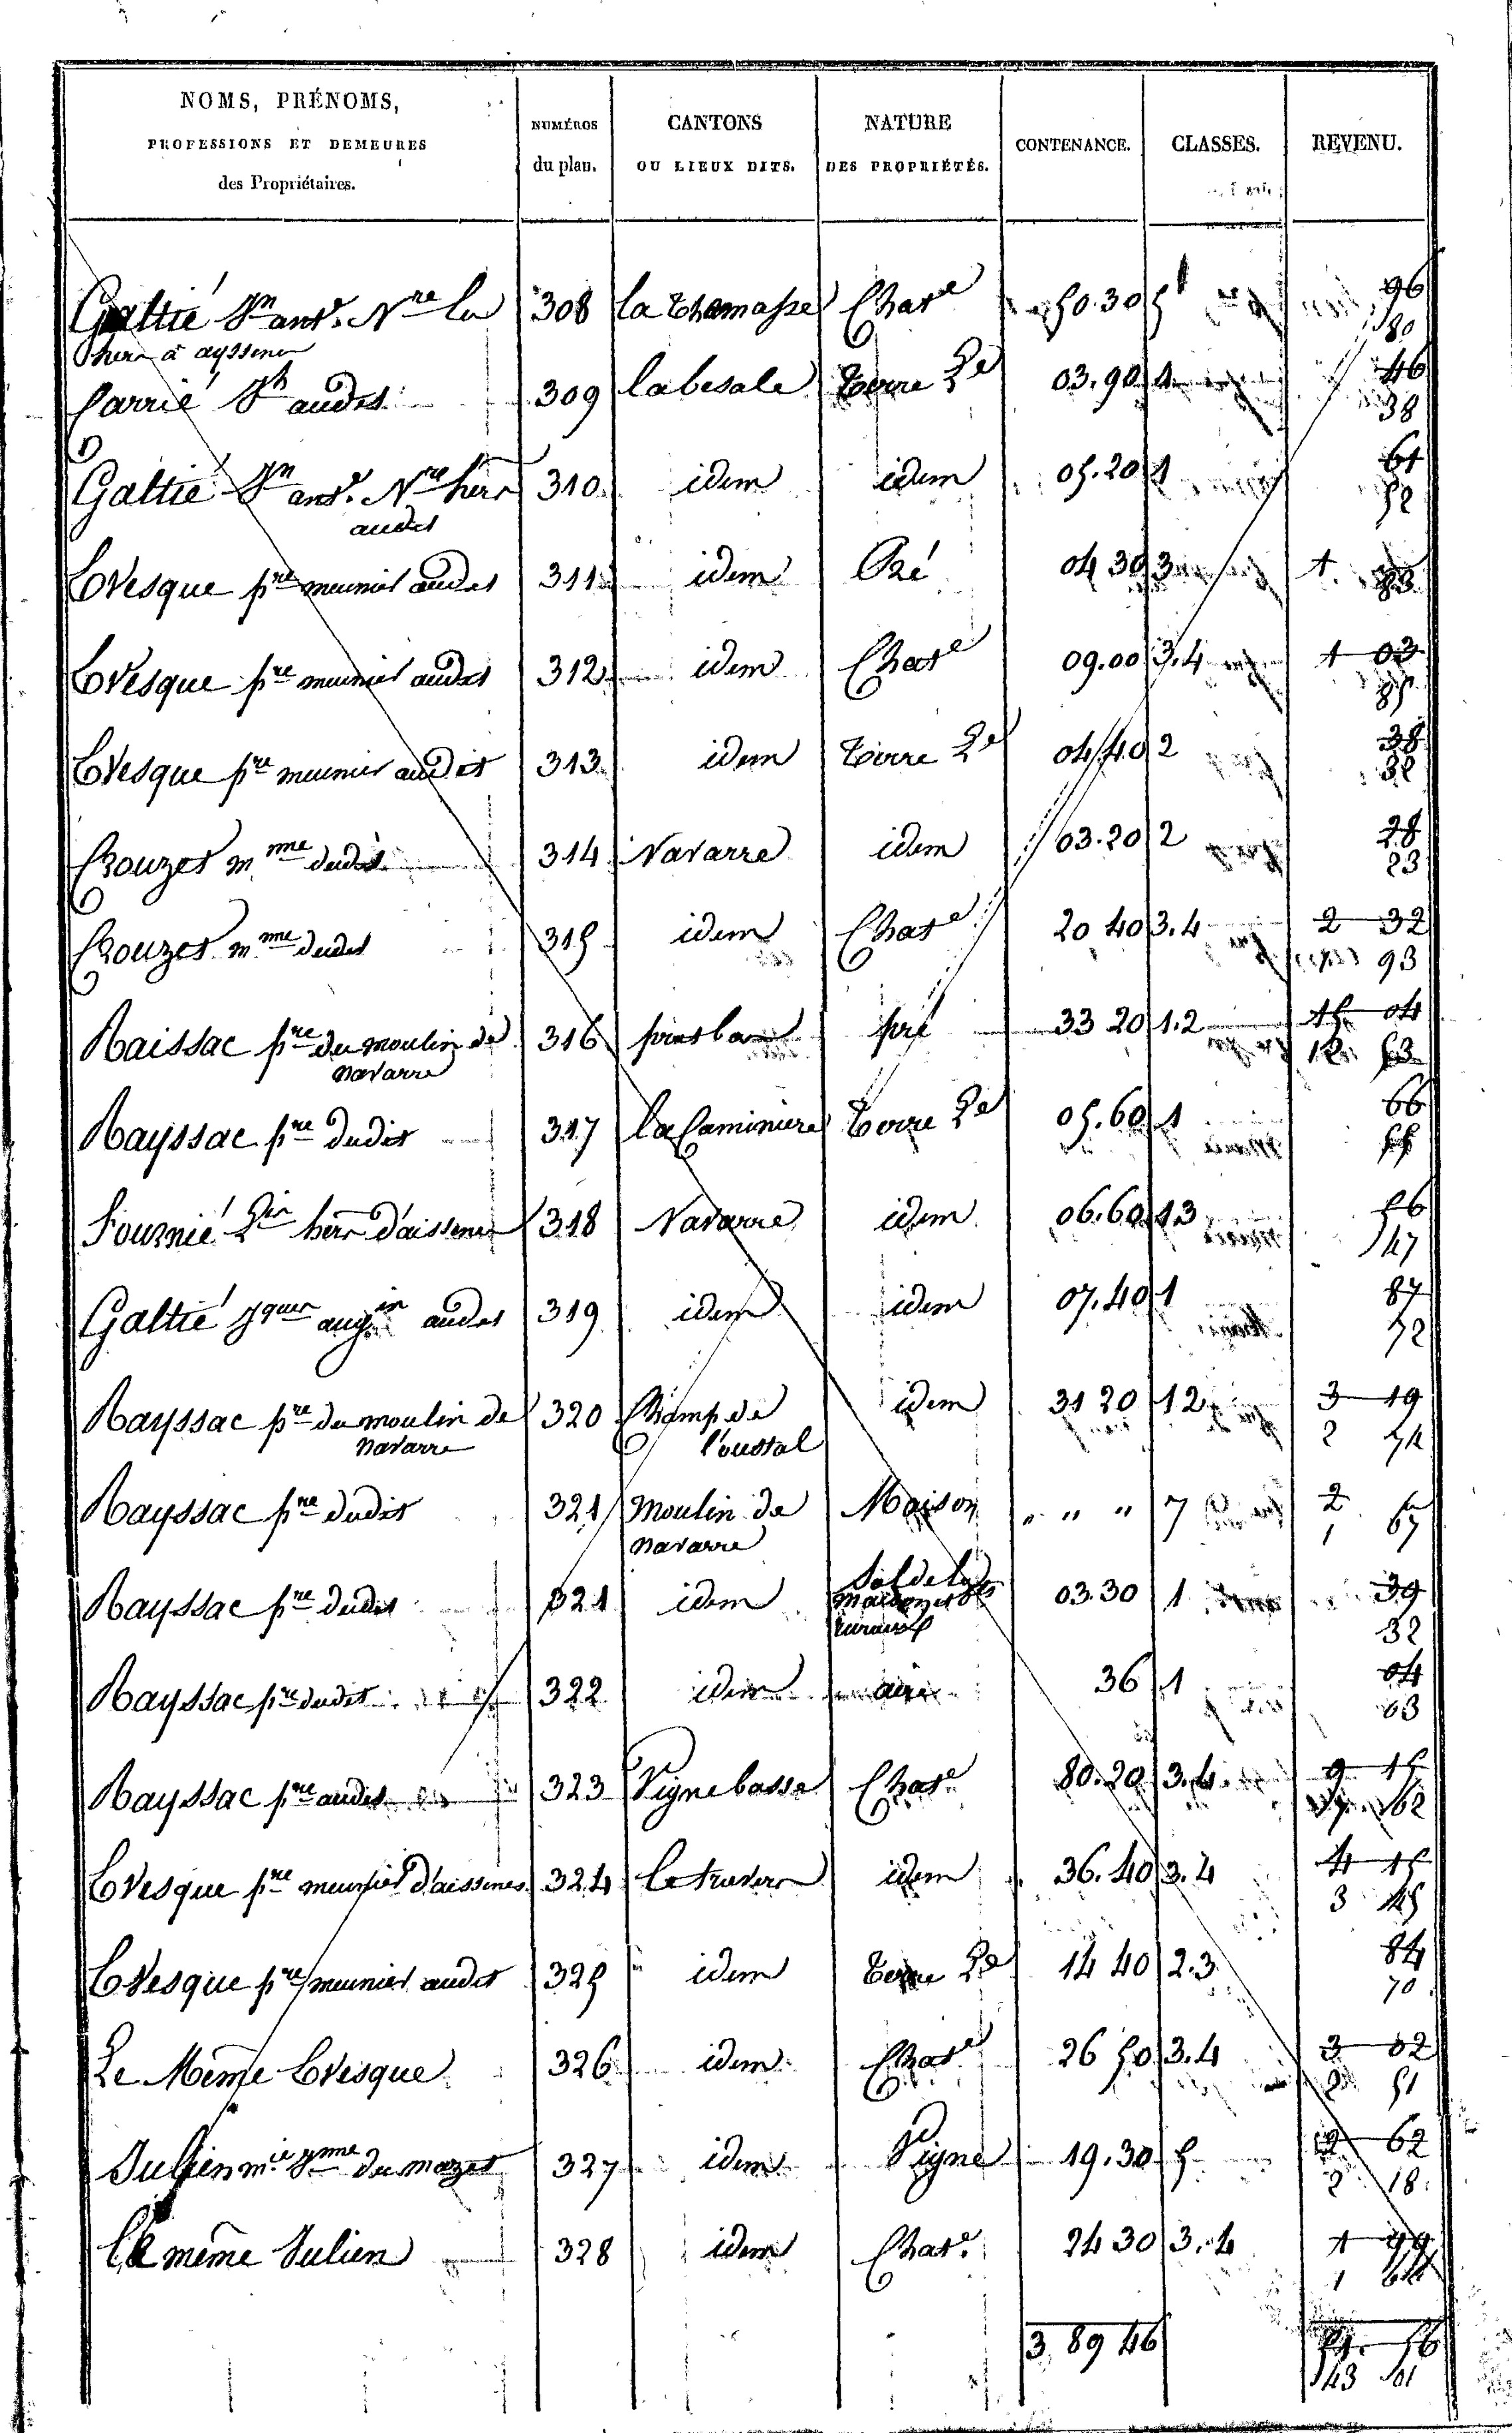 NOMS, PRÉNOMS,
PROFESSIONS ET DEMEURES
des Propriétaires.
NUMÉROS
du plan.
CANTONS
OU LIEUX DITS.
NATURE
DES PROPRIÉTÉS.
CONTENANCE.
CLASSES.
REVENU.
Galtié Jn ant. Nre la 308 la thomasse Chate 50.30 5 96
hers à ayssenes 80
Carrié Jh audit 309 labesale terre Le 03.90 1 46
38
Galtié Jn ant. Nre hers 310 idem idem 05.20 1 61
audit 52
Lvesque pre meunier audit 311 idem Pré 04 30 3 1. 83
Lvesque pre meunier audit 312 idem Chate 09.00 3.4 1 03
85
Lvesque pre meunier audit 313 idem terre Le 04.40 2 38
32
Crouzet m mme dudit 314 Navarre idem 03.20 2 28
23
Crouzet m mme dudit 315 idem Chate 20 40 3.4 2 32
1 93
Raissac pre du moulin de 316 pré 33 20 1.2 15 04
navarre 12 53
Rayssac pre dudit 317 la Caminiere terre Le 05.60 1 66
55
Fournié hers d'aissenes 318 Navarre idem 06.60 1.3 56
47
Galtié Jques augin audit 319 idem idem 07.40 1 87
72
Rayssac pre du moulin de 320 Champ de idem 31 20 1 2 3 19
navarre l'oustal 2
Rayssac pre dudit 321 moulin de Maison " " " 7 2
navarre 1 67
Rayssac pre dudit 321 idem Sol de la 03.30 1 39
maison et 32
Rayssac pre dudit 322 idem aire 36 1 04
03
Rayssac pre audit 323 Vigne basse Chate 80.20 3.4 9 15
7 62
Lvesque pre meunier d'aissenes 324 le travers idem 36.40 3.4 4 15
3 45
Lvesque pre meunier audit 325 idem terre Le 14 40 2.3 84
70
Le Même Lvesque 326 idem Chate 26 50 3.4 3 02
2 51
Julien mie Jmme du mazet 327 idem Vigne 19.30 5 2 62
2 18
Le même Julien 328 idem Chate 24 30 3.4 1 99
1
3 89 46 51. 56
43 01